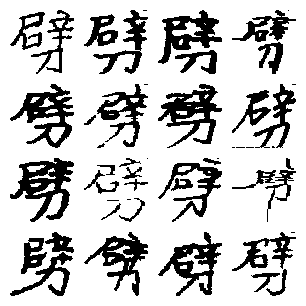 劈劈劈劈
劈劈劈劈
劈劈劈劈
劈劈劈劈